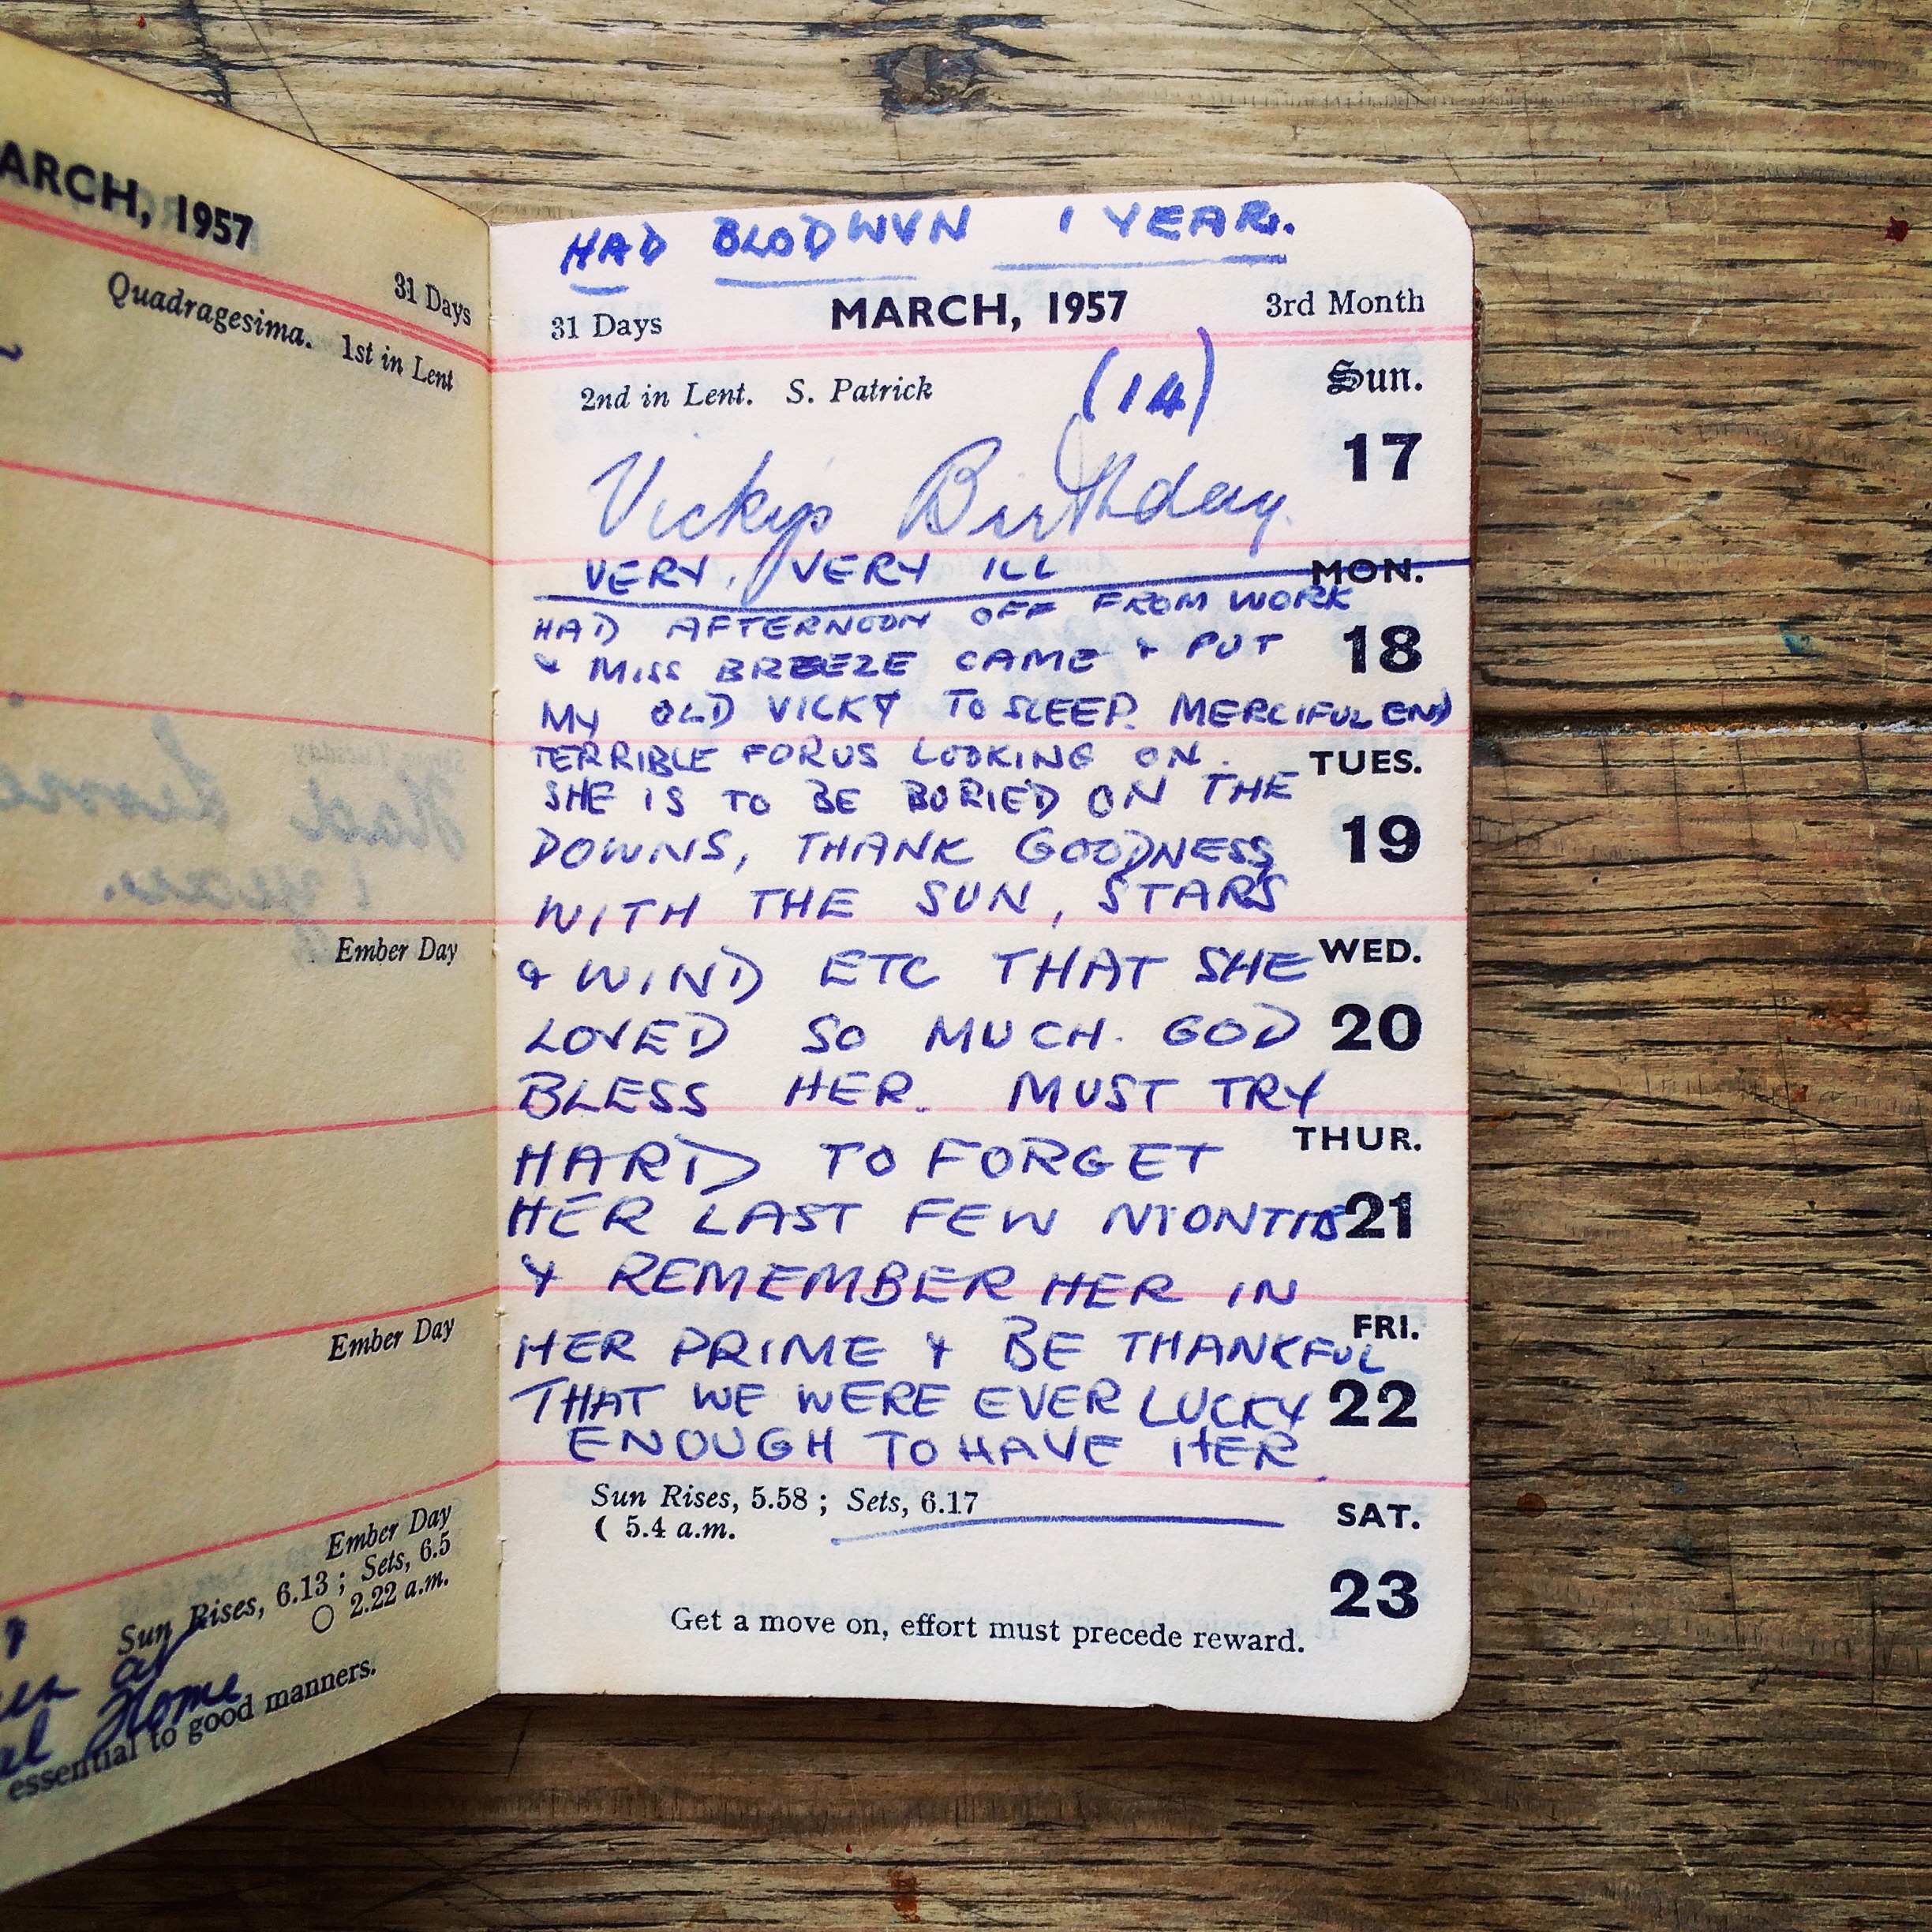 ARCH, 1957
31 Days
Quadragesima. 1st in Lent
Ember Day
Ember Day
Ember Day
Sun Rises, 6.13 ; Sets, 6.5
2.22 a.m.
Home
essential to good manners.
HAD BLODWYN 1 YEAR.
31 Days MARCH, 1957 3rd Month
2nd in Lent. S. Patrick (14) Sun.
17
Vicky's Birthday.
VERY, VERY ILL MON.
HAD AFTERNOON OFF FROM WORK
& MISS BREEZE CAME & PUT 18
MY OLD VICKY TO SLEEP. MERCIFUL END
TERRIBLE FOR US LOOKING ON. TUES.
SHE IS TO BE BURIED ON THE
DOWNS, THANK GOODNESS 19
WITH THE SUN, STARS
& WIND ETC THAT SHE WED.
LOVED SO MUCH. GOD 20
BLESS HER. MUST TRY
HARD TO FORGET THUR.
HER LAST FEW MONTHS 21
& REMEMBER HER IN
HER PRIME & BE THANKFUL FRI.
THAT WE WERE EVER LUCKY 22
ENOUGH TO HAVE HER.
Sun Rises, 5.58 ; Sets, 6.17 SAT.
( 5.4 a.m.
23
Get a move on, effort must precede reward.